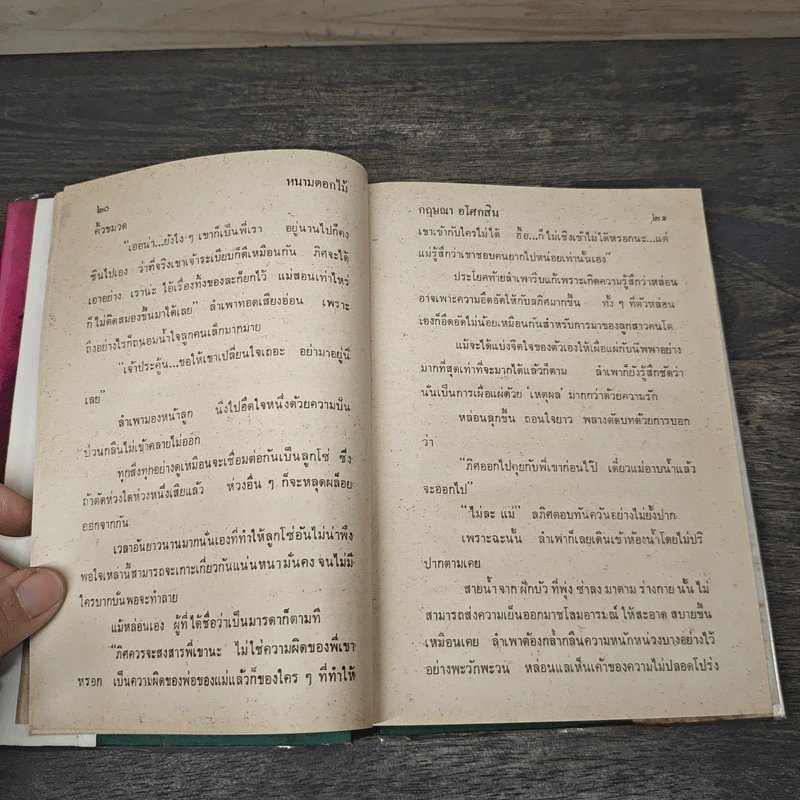 ๒๐
หนามดอกไม้
คิ้วขมวด
"เออน่า...ยังไง ๆ เขาก็เป็นพี่เรา อยู่นานไปก็คง
ชินไปเอง ว่าที่จริงเขาเจ้าระเบียบก็ดีเหมือนกัน ภิศจะได้
เอาอย่าง เราน่ะ ไอ้เรื่องทิ้งของละก็ยกไว้ แม่สอนเท่าไหร่
ก็ไม่ติดสมองขึ้นมาได้เลย" ลำเพาทอดเสียงอ่อน เพราะ
ถึงอย่างไรก็ถนอมน้ำใจลูกคนเล็กมากมาย
"เจ้าประคู้น...ขอให้เขาเปลี่ยนใจเถอะ อย่ามาอยู่นี่
เลย"
ลำเพามองหน้าลูก นิ่งไปอึดใจหนึ่งด้วยความปั่น
ป่วนกลืนไม่เข้าคลายไม่ออก
ทุกสิ่งทุกอย่างดูเหมือนจะเชื่อมต่อกันเป็นลูกโซ่ ซึ่ง
ถ้าตัดห่วงใดห่วงหนึ่งเสียแล้ว ห่วงอื่น ๆ ก็จะหลุดผล็อย
ออกจากกัน
เวลาอันยาวนานมากนั่นเองที่ทำให้ลูกโซ่อันไม่น่าพึง
พอใจเหล่านี้สามารถจะเกาะเกี่ยวกันแน่นหนามั่นคง จนไม่มี
ใครบากบั่นพอจะทำลาย
แม้หล่อนเอง ผู้ที่ได้ชื่อว่าเป็นมารดาก็ตามที
"ภิศควรจะสงสารพี่เขานะ ไม่ใช่ความผิดของพี่เขา
หรอก เป็นความผิดของพ่อของแม่แล้วก็ของใคร ๆ ที่ทำให้
กฤษณา อโศกสิน
๒๑
เขาเข้ากับใครไม่ได้ ฮื้อ...ก็ไม่เชิงเข้าไม่ได้หรอกนะ...แต่
แม่รู้สึกว่าเขาชอบคนยากไปหน่อยเท่านั้นเอง"
ประโยคท้ายลำเพารีบแก้เพราะเกิดความรู้สึกว่าหล่อน
อาจเพาะความอึดอัดให้กับลภิศมากขึ้น ทั้ง ๆ ที่ตัวหล่อน
เองก็อึดอัดไม่น้อยเหมือนกันสำหรับการมาของลูกสาวคนโต
แม้จะได้แบ่งจิตใจของตัวเองให้เผื่อแผ่กับนีพพาอย่าง
มากที่สุดเท่าที่จะมากได้แล้วก็ตาม ลำเพาก็ยังรู้สึกชัดว่า
นั่นเป็นการเผื่อแผ่ด้วย 'เหตุผล' มากกว่าด้วยความรัก
หล่อนลุกขึ้น ถอนใจยาว พลางตัดบทด้วยการบอก
ว่า
"ภิศออกไปคุยกับพี่เขาก่อนไป๊ เดี๋ยวแม่อาบน้ำแล้ว
จะออกไป"
"ไม่ละ แม่" ลภิศตอบทันควันอย่างไม่ยั้งปาก
เพราะฉะนั้น ลำเพาก็เลยเดินเข้าห้องน้ำโดยไม่ปริ
ปากตามเคย
สายน้ำจากฝักบัวที่พุ่งซ่าลงมาตามร่างกายนั้นไม่
สามารถส่งความเย็นออกมาชโลมอารมณ์ ให้สะอาด สบายขึ้น
เหมือนเคย ลำเพาต้องกล้ำกลืนความหนักหน่วงบางอย่างไว้
อย่างพะวักพะวน หล่อนแลเห็นเค้าของความไม่ปลอดโปร่ง